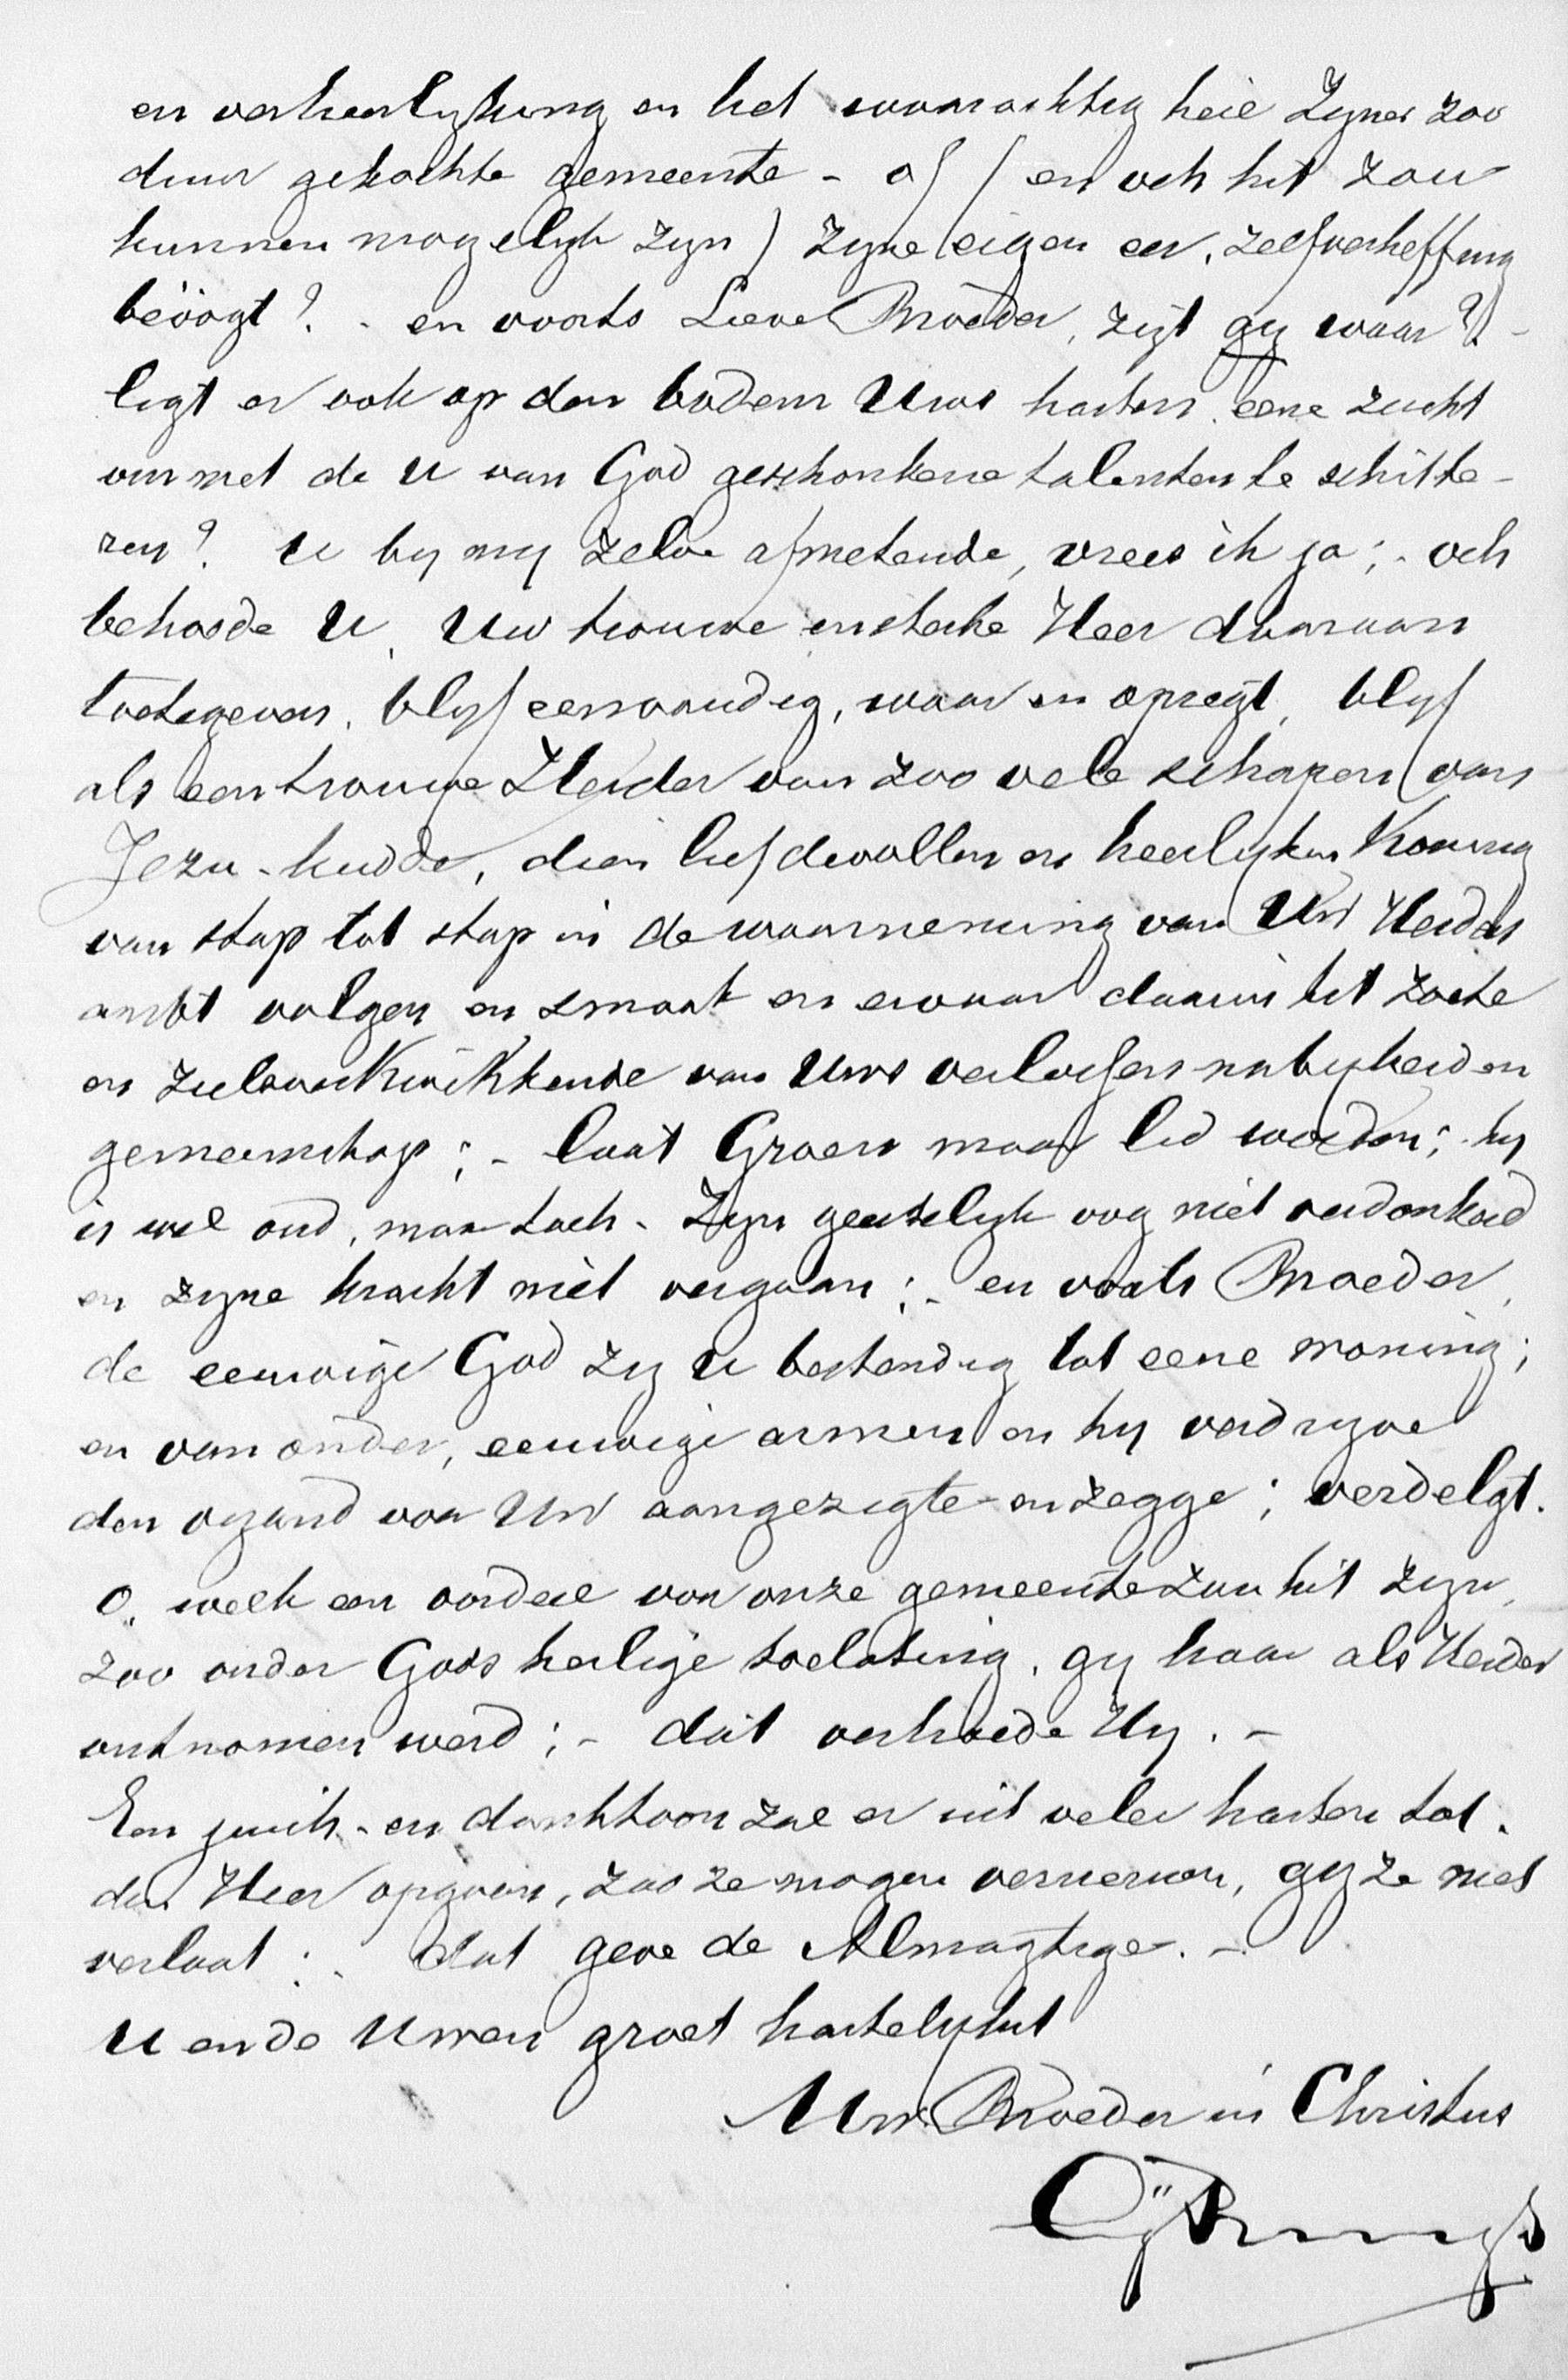 en verheerlyking en het waarachtig heil Zyner zoo
duur gekochte gemeente - of (en och het zou
kunnen mogelyk zyn) zyne eigen eer, zelfverheffing
beoogt? - en voorts Lieve Broeder, zijt gy waar? -
ligt er ook op den bodem Uws harten eene zucht
om met de U van God geschonkene talenten te schitte-
ren? U by my zelve afmetende, vrees ik ja; - och
behoede U, Uw trouwe en sterke Heer daaraan
toetegeven, blyf eenvoudig, waar en opregt, blyf
als een trouwe Herder van zoo vele schapen van
Jezu-kudde, dien liefdevollen en heerlyken Koning
van stap tot stap in de waarneming van Uw Herders
ambt volgen en smaak en ervaar daarin het zoete
en zielsverkwikkende van Uws verlossers nabyheid en
gemeenschap; - laat Groen maar lid worden; hy
is wel oud, maar toch - Zyn geestelyk oog niet verdonkerd
en zyne kracht niet vergaan; - en voorts Broeder,
de eeuwige God zy U bestendig tot eene woning;
en van onder, eeuwige armen en hy verdryve
den vyand voor Uw aangezigte en zegge; verdelgt.
O, welk een oordeel voor onze gemeente zou het zyn,
zoo onder Gods heilige toelating, gy haar als Herder
ontnomen werd; - dat verhoede Hy. -
Een juich- en dankktoon zal er uit veler harten tot
den Heer opgaan, zoo ze mogen vernemen, gy ze niet
verlaat; - dat geve de Almagtige. -
U en de Uwen groet hartelykst
Uw Broeder in Christus